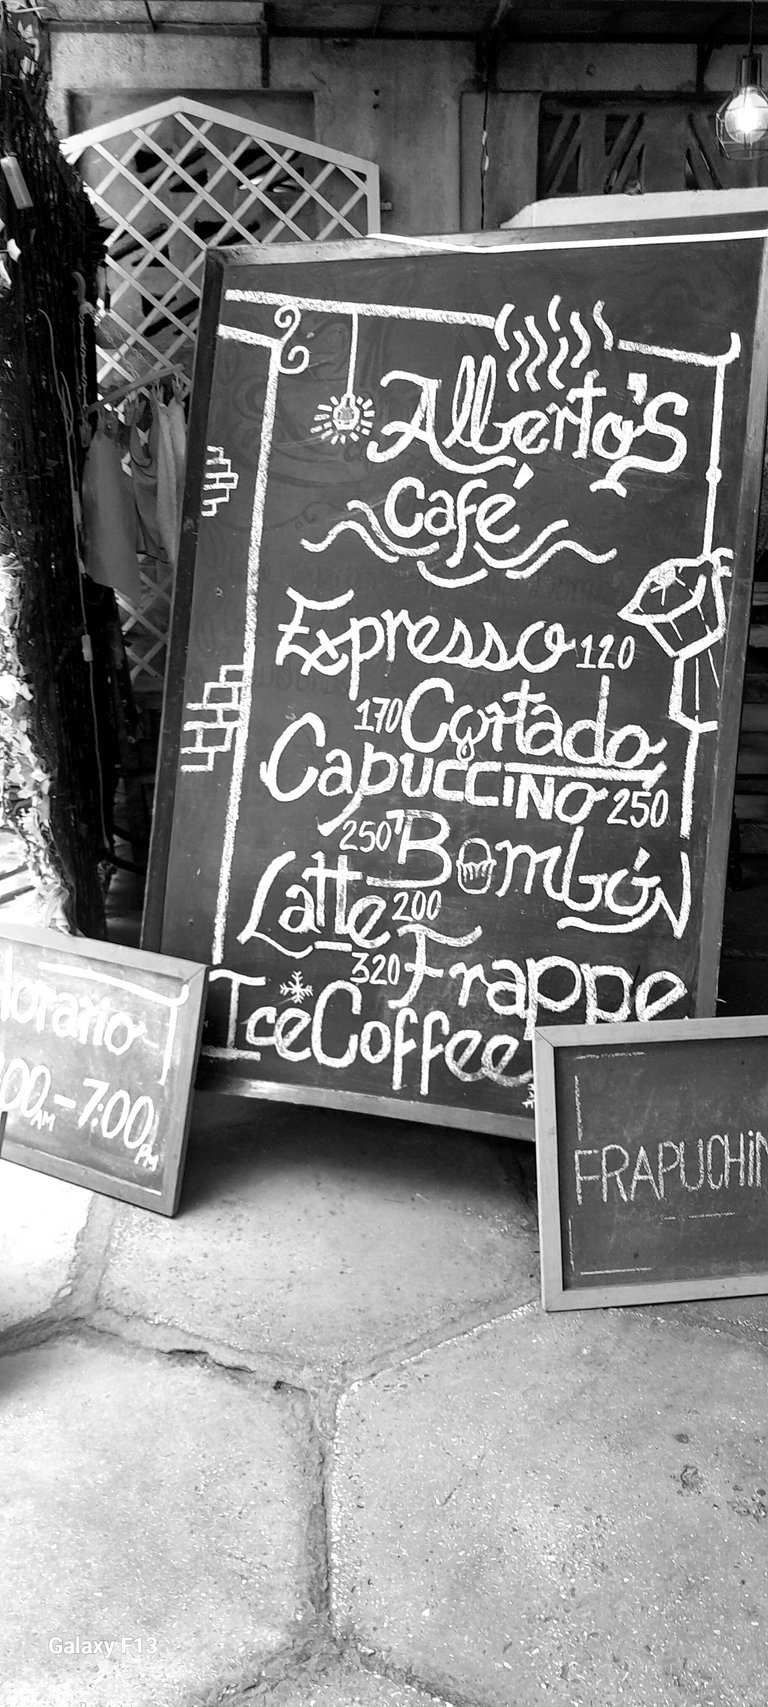 Alberto's
Café
Espresso 120
170 Cortado
Capuccino 250
250 Bombón
Latte 200
320 Frappe
Ice Coffee
Horario
00 AM - 7:00 PM
FRAPUCHIN
Galaxy F13